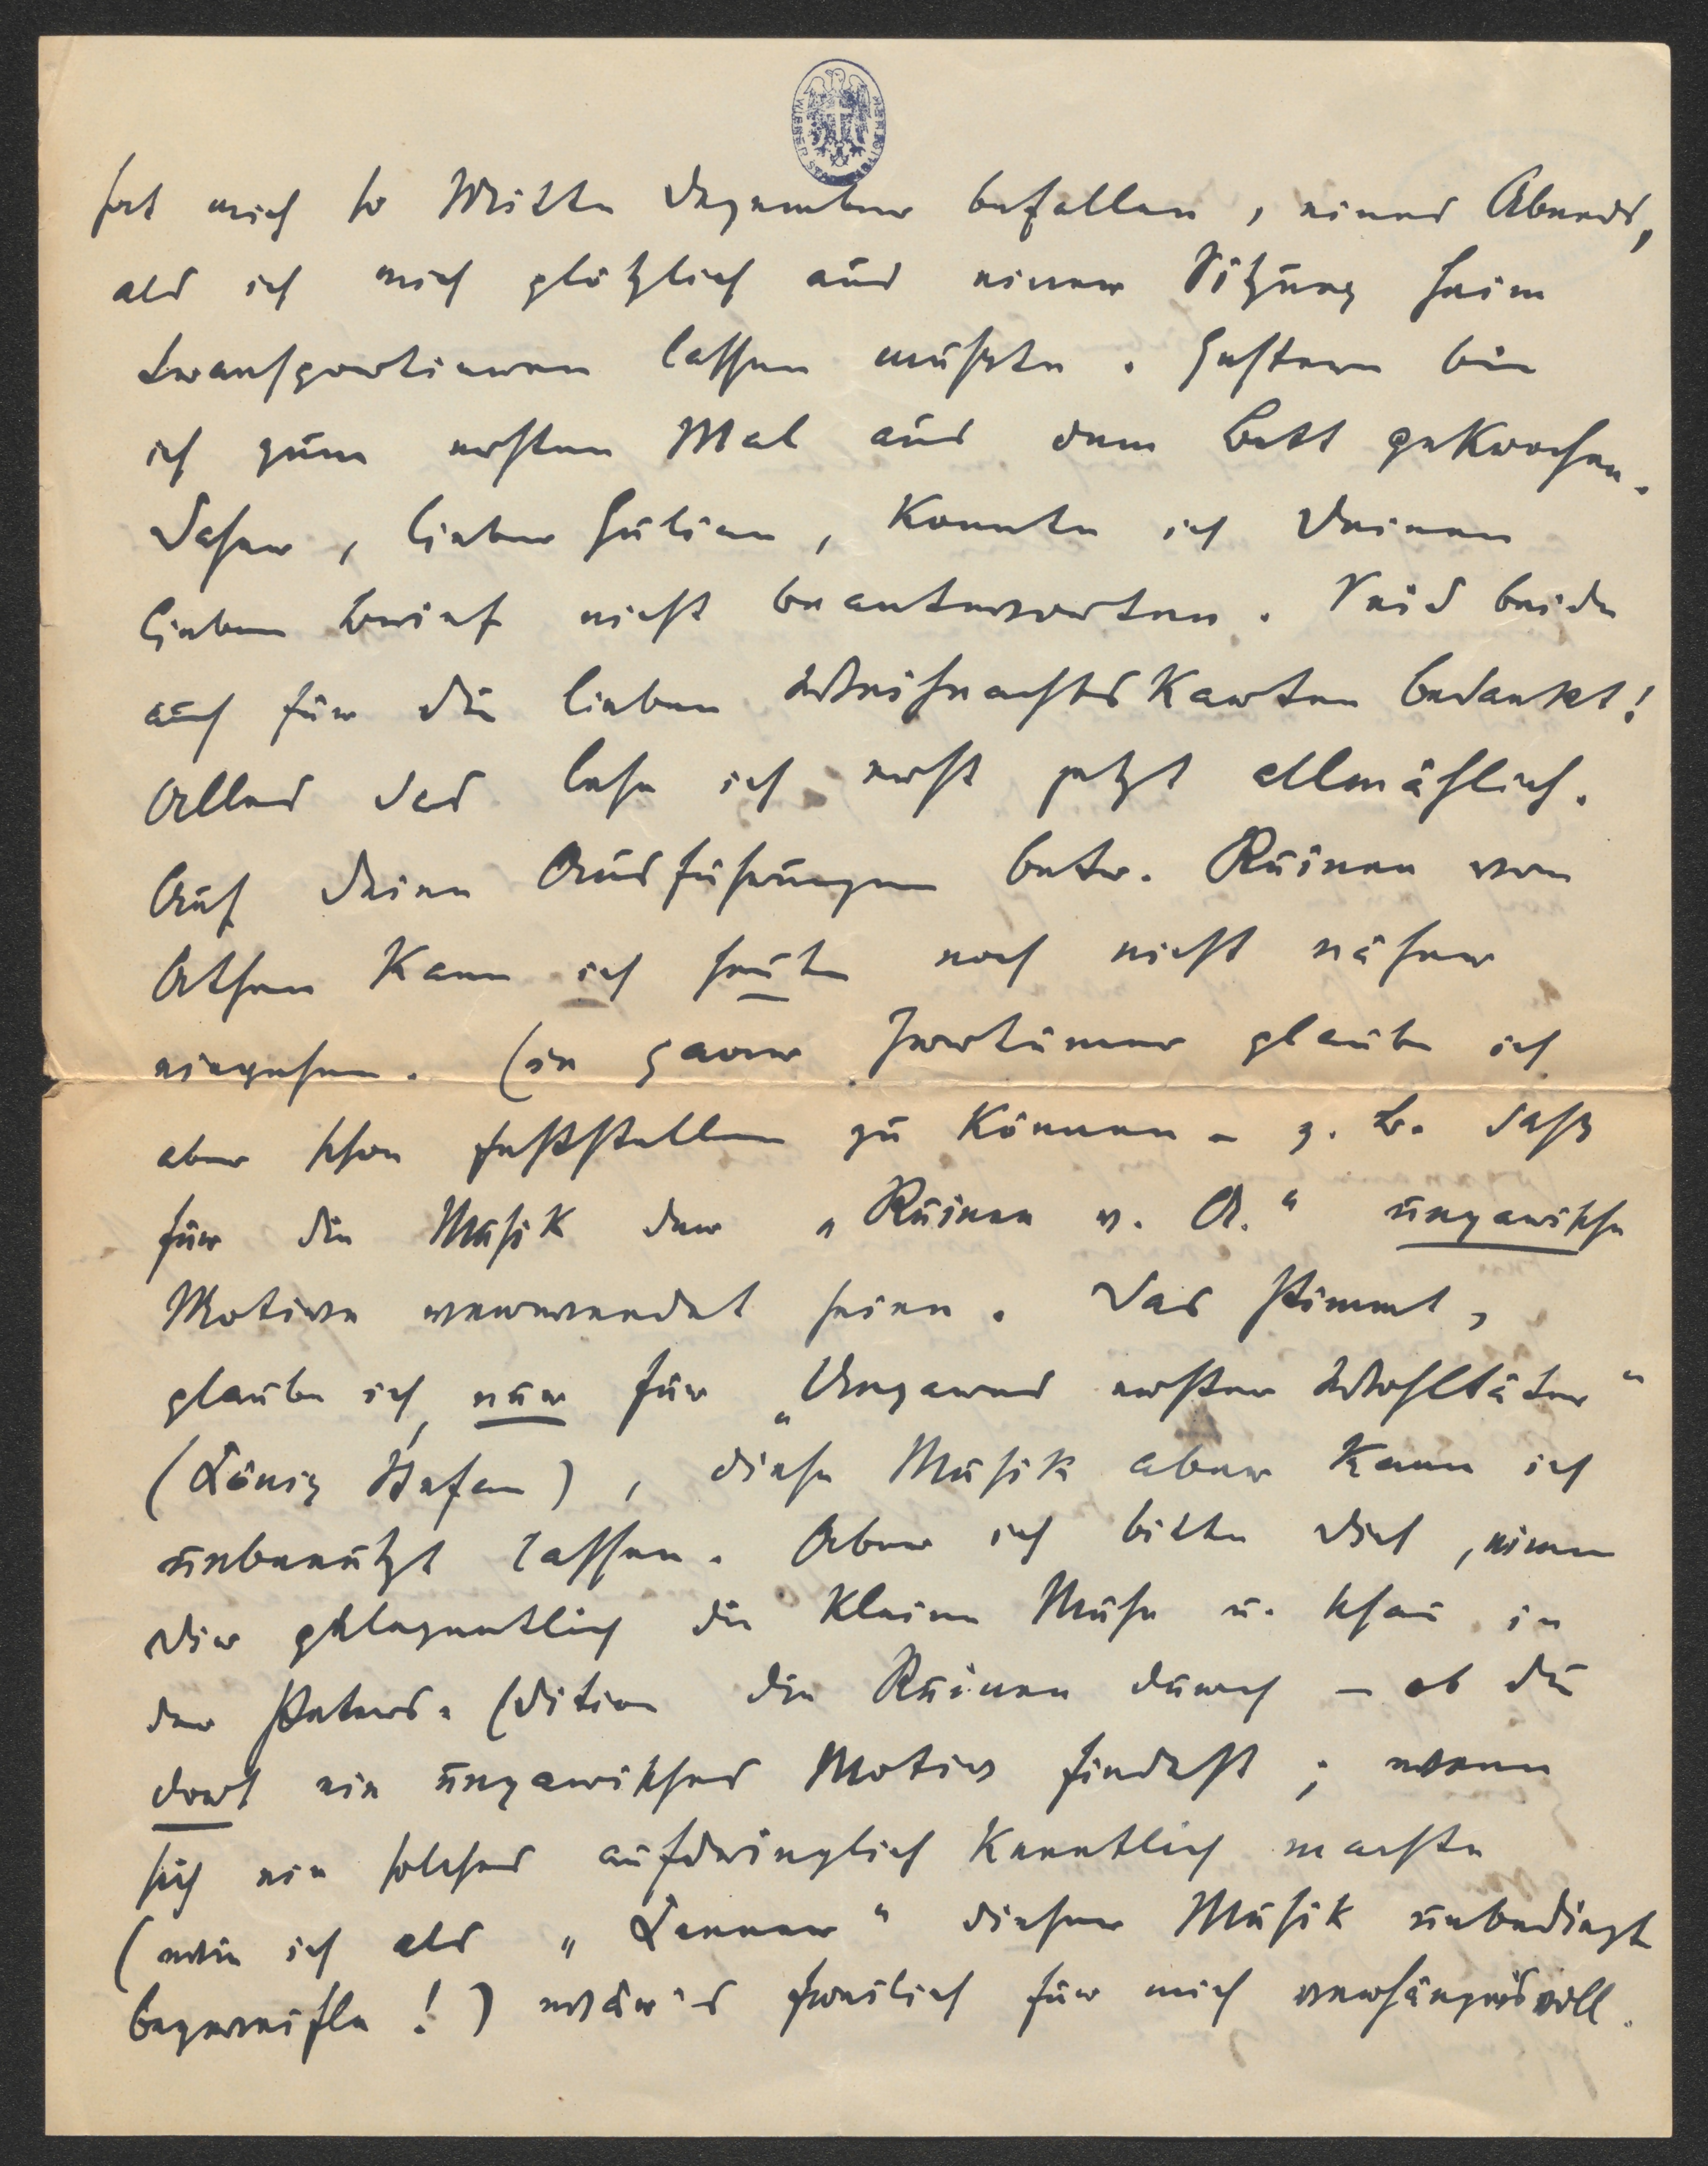 hat mich so Mitte Dezember befallen, eines Abends,
als ich mich plötzlich aus einer Sitzung heim
transportieren lassen musste. Gestern bin
ich zum ersten Mal aus dem Bett gekrochen.
Daher, lieber Julian, konnte ich Deinen
lieben Brief nicht beantworten. Seid beide
auch für die lieben Weihnachtskarten bedankt!
Alles das lese ich erst jetzt allmählich.
Auf Deine Ausführungen betr. Ruinen von
Athen kann ich heute noch nicht näher
eingehen. Ein paar Irrtümer glaube ich
aber schon feststellen zu können – z. B. dass
für die Musik der „Ruinen v. A.“ ungarische
Motive verwendet seien. Das stimmt,
glaube ich, nur für „Ungarns erster Wohltäter“
(König Stefan), diese Musik aber kann ich
unbenützt lassen. Aber ich bitte Dich, nimm
Dir gelegentlich die kleine Mühe u. schau in
der Peters-Edition die Ruinen durch – ob Du
dort ein ungarisches Motiv findest; wenn
sich ein solches aufdringlich kenntlich machte
(wie ich als „Kenner“ dieser Musik unbedingt
bezweifle!) wär's freilich für mich verhängnisvoll.